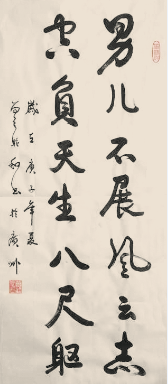 男儿不展风云志
空负天生八尺躯
岁在庚子年夏
书於广州